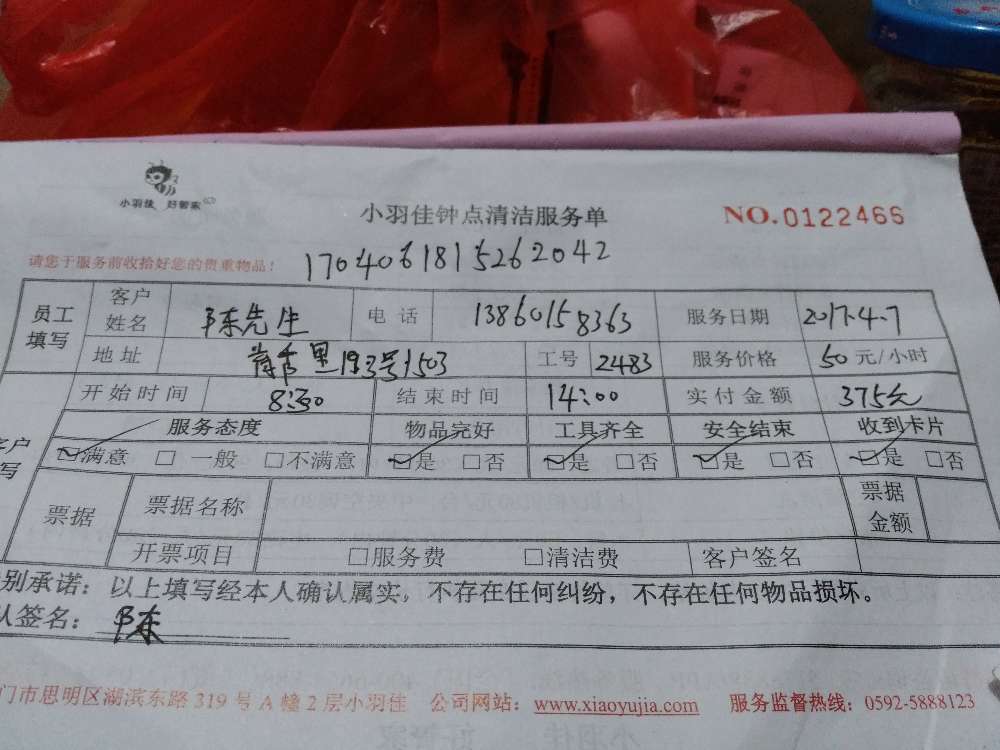 小羽佳 好管家
小羽佳钟点清洁服务单 NO.0122466
请您于服务前收拾好您的贵重物品！ 1704061815262042
员工填写 客户姓名 陈先生 电话 13860158363 服务日期 2017.4.7
地址 里193号1503 工号 2483 服务价格 50元/小时
开始时间 8:30 结束时间 14:00 实付金额 375元
客户 写 服务态度 物品完好 工具齐全 安全结束 收到卡片
☑满意 □一般 □不满意 ☑是 □否 ☑是 □否 ☑是 □否 ☑是 □否
票据 票据名称 票据金额
开票项目 □服务费 □清洁费 客户签名
别承诺：以上填写经本人确认属实，不存在任何纠纷，不存在任何物品损坏。
认签名：陈
门市思明区湖滨东路319号A幢2层小羽佳 公司网站：www.xiaoyujia.com 服务监督热线：0592-5888123